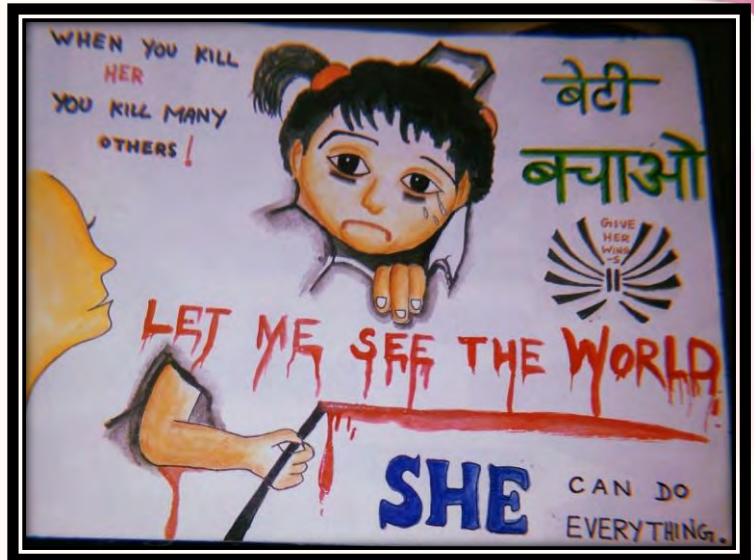 WHEN YOU KILL
HER
YOU KILL MANY
OTHERS!
बेटी
बचाओ
GIVE
HER
WING
-S
LET ME SEE THE WORLD
SHE CAN DO
EVERYTHING.